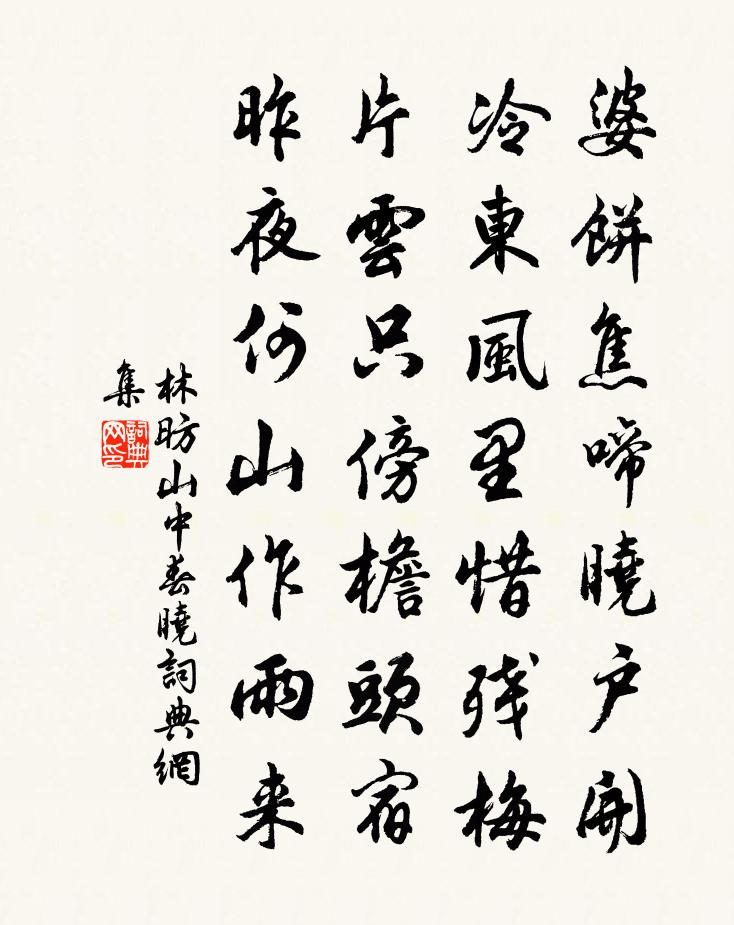 婆餅焦啼曉户開
冷東風里惜残梅
片雲只傍檐頭宿
昨夜何山作雨来
林昉山中春曉詞典網
集
詞典
网印